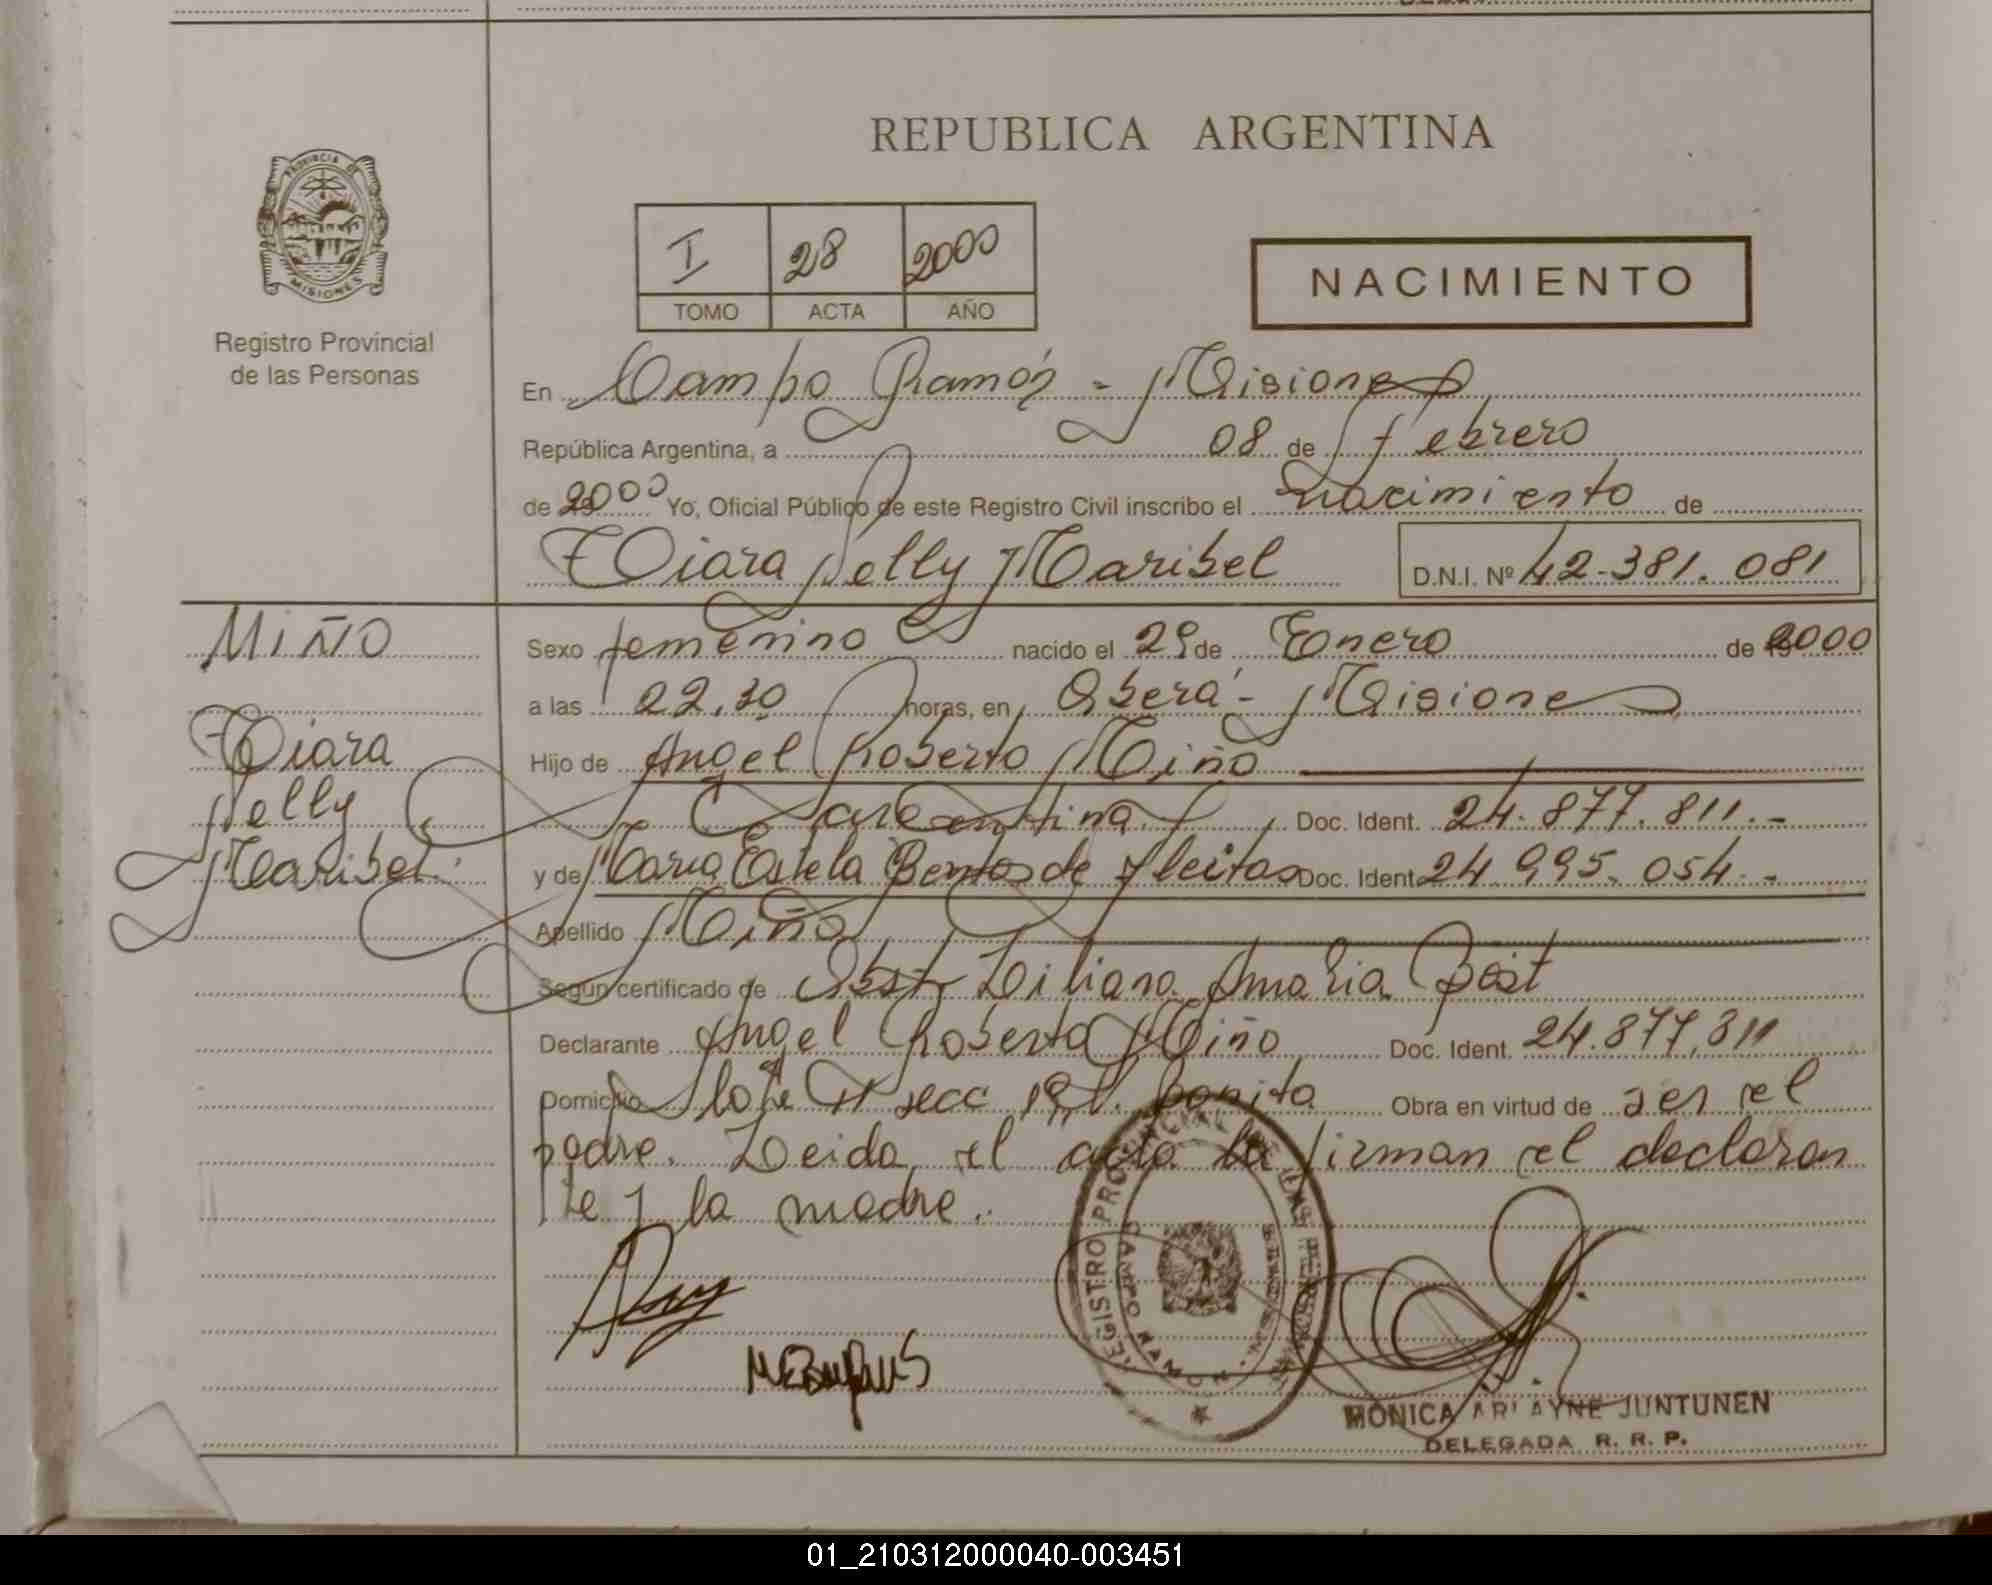 REPUBLICA ARGENTINA
PROVINCIA DE
MISIONES
Registro Provincial
de las Personas
I 28 2000
TOMO ACTA AÑO
NACIMIENTO
En Campo Ramón - Misiones
República Argentina, a 08 de febrero
de 2000 Yo, Oficial Público de este Registro Civil inscribo el nacimiento de
Tiara Nelly Maribel D.N.I. Nº 42.381.081
MIÑO
Tiara
Nelly
Maribel
Sexo femenino nacido el 29 de Enero de 2000
a las 22,30 horas, en Oberá - Misiones
Hijo de Angel Roberto Miño
Argentina Doc. Ident. 24.877.811.-
y de Maria Estela Bentos de Fleitas Doc. Ident 24.995.054.-
Apellido Miño
Según certificado de Obst. Liliana Amalia Post
Declarante Angel Roberto Miño Doc. Ident. 24.877.811
Domicilio lote 11 secc Bonita Obra en virtud de ser el
padre. Leida el acta la firman el declaran
te y la madre.
REGISTRO PROVINCIAL DE LAS PERSONAS
CAMPO RAMON
MONICA ARLAYNE JUNTUNEN
DELEGADA R. R. P.
01_210312000040-003451